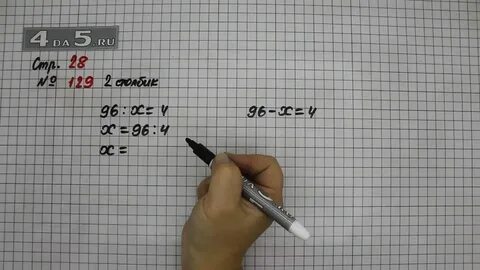 4 DA 5.RU
Стр. 28
№ 129 2 столбик
96 : x = 4
96 - x = 4
x = 96 : 4
x =